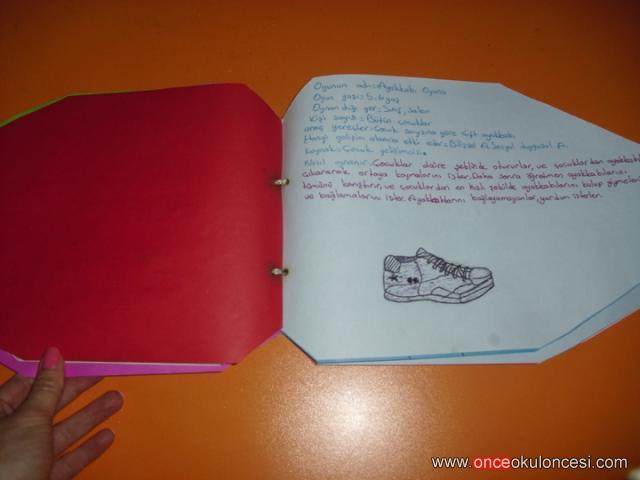 Oyunun adı=Ayakkabı Oyunu
Oyun yaşı=5-6 yaş
Oynandığı yer=Sınıf, salon
Kişi sayısı=Bütün çocuklar
araç gereçler=Çocuk sayısına göre çift ayakkabı
Hangi gelişim alanına etki eder=Bilişsel A. Sosyal duygusal A.
Kaynak=Çocuk gelişimcisi
Nasıl oynanır=Çocuklar daire şeklinde otururlar, ve çocuklardan ayakkabı
çıkararak ortaya koymalarını ister. Daha sonra öğretmen ayakkabıların
tümünü karıştırır, ve çocuklardan en hızlı şekilde ayakkabılarını bulup giymeleri
ve bağlamalarını ister. Ayakkabılarını bağlayamayanlar, yardım isterler.
www.onceokuloncesi.com